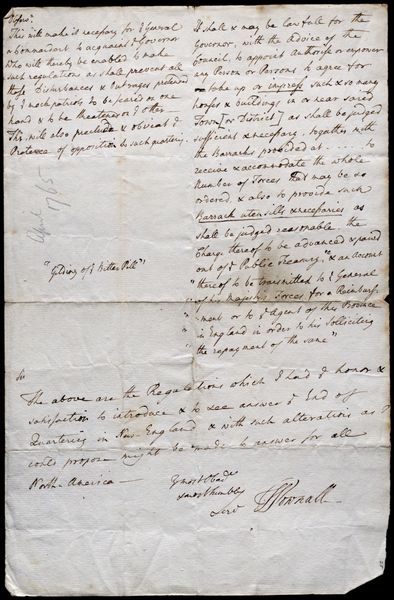 This will make it necessary for ye General
or Commandant to acquaint ye Governor
who will thereby be enabled to make
such regulations as shall prevent all
those Disturbances & Outrages pretended
by ye mock patriots to be feared on one
hand & to be threatened on ye other
This will also preclude & obviate ye
Pretence of opposition to such quartering.
April
1765
"Gilding of ye Bitter Pill"
It shall & may be lawfull for the
Governor, with the Advice of the
Council, to appoint Authorise or impower
any Person or Persons to agree for
take up or impress such & so many
houses & buildings in or near said
Town [or District] as shall be judged
sufficient & necessary together with
the Barracks provided at . . . . . to
receive & accommodate the whole
Number of Forces that may be so
ordered, & also to provide such
Barrack utensills & necessaries as
shall be judged reasonable the
Charge thereof to be advanced & paid
out of ye Public Treasury, "& an account
"thereof to be transmitted to ye General
"of his Majestys Forces for a Reimburs-
"ment or to ye Agent of this Province
"in England in order to his Solliciting
"the repayment of the same"
Sir
The above are the Regulations which I had ye honor &
satisfaction to introduce & to see answer ye End of
Quartering in New-England & with such alterations as I
could propose might be made to answer for all
North-America —
Yr most Obedt
& most humble
Servt
T Pownall